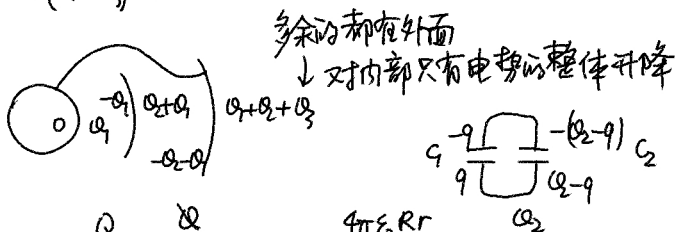 多余的都在外面
↓ 对内部只有电势的整体升降
O Q₁ -Q₁ Q₂+Q₁ -Q₂-Q₁ Q₁+Q₂+Q₃
C₁ -q -(Q₂-q) C₂
q Q₂-q
Q₂
4πε₀Rr